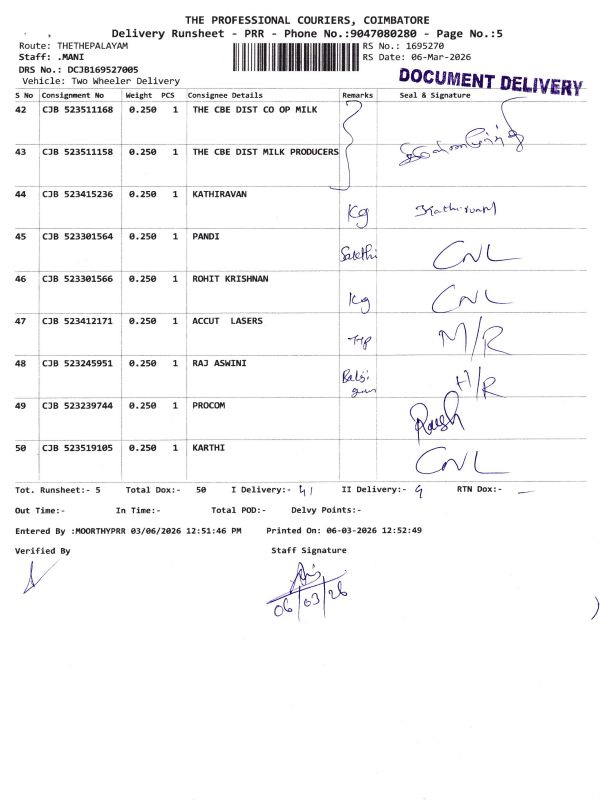 THE PROFESSIONAL COURIERS, COIMBATORE
Delivery Runsheet - PRR - Phone No.:9047080280 - Page No.:5
Route: THETHEPALAYAM RS No.: 1695270
Staff: .MANI RS Date: 06-Mar-2026
DRS No.: DCJB169527005
DOCUMENT DELIVERY
Vehicle: Two Wheeler Delivery
S No Consignment No Weight PCS Consignee Details Remarks Seal & Signature
42 CJB 523511168 0.250 1 THE CBE DIST CO OP MILK
43 CJB 523511158 0.250 1 THE CBE DIST MILK PRODUCERS
44 CJB 523415236 0.250 1 KATHIRAVAN Kg
45 CJB 523301564 0.250 1 PANDI CNL
46 CJB 523301566 0.250 1 ROHIT KRISHNAN Kg CNL
47 CJB 523412171 0.250 1 ACCUT LASERS M/R
48 CJB 523245951 0.250 1 RAJ ASWINI H/R
49 CJB 523239744 0.250 1 PROCOM
50 CJB 523519105 0.250 1 KARTHI CNL
Tot. Runsheet:- 5 Total Dox:- 50 I Delivery:- 41 II Delivery:- 9 RTN Dox:- —
Out Time:- In Time:- Total POD:- Delvy Points:-
Entered By :MOORTHYPRR 03/06/2026 12:51:46 PM Printed On: 06-03-2026 12:52:49
Verified By Staff Signature
06/03/26